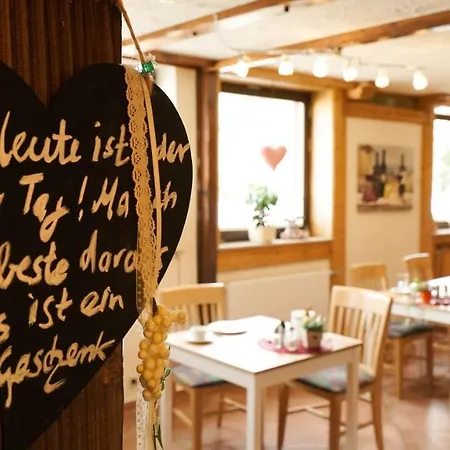 Heute ist der
Tag! Mach
beste daraus
es ist ein
Geschenk